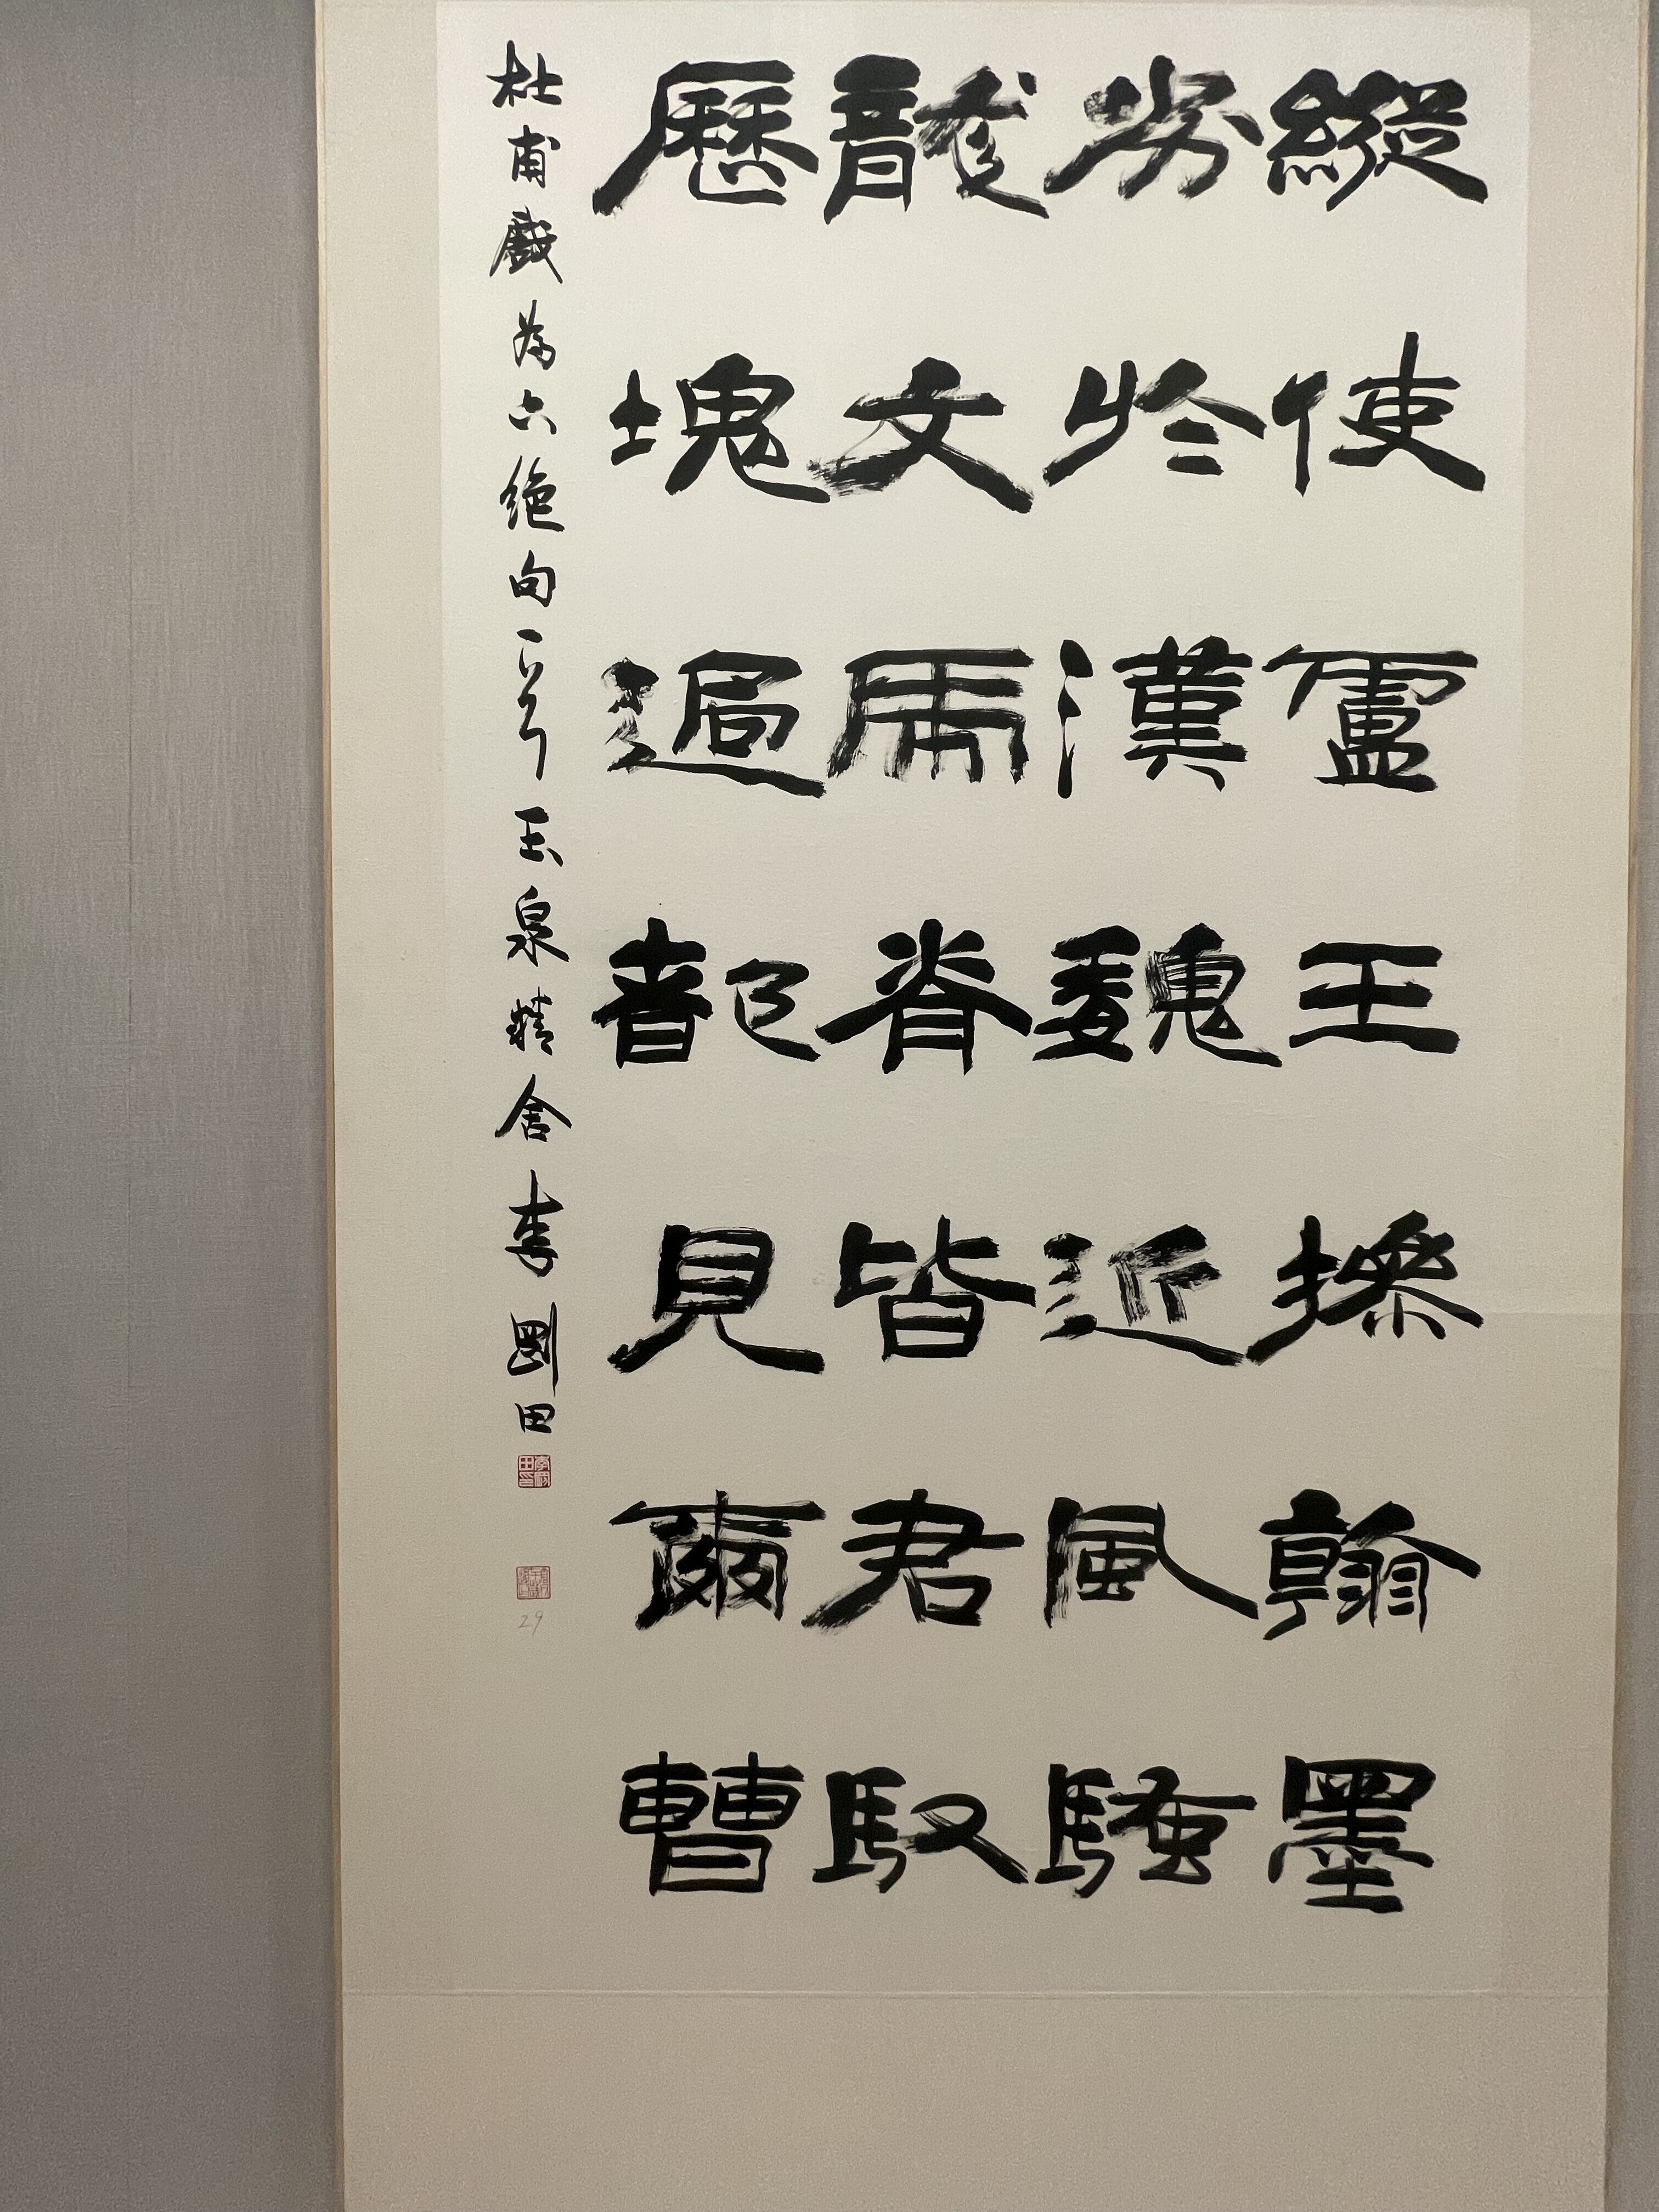 縱使盧王操翰墨
劣於漢魏近風騷
龍文虎脊皆君馭
歷塊過都見爾曹
杜甫戲為六絕句 玉泉精舍李剛田
29